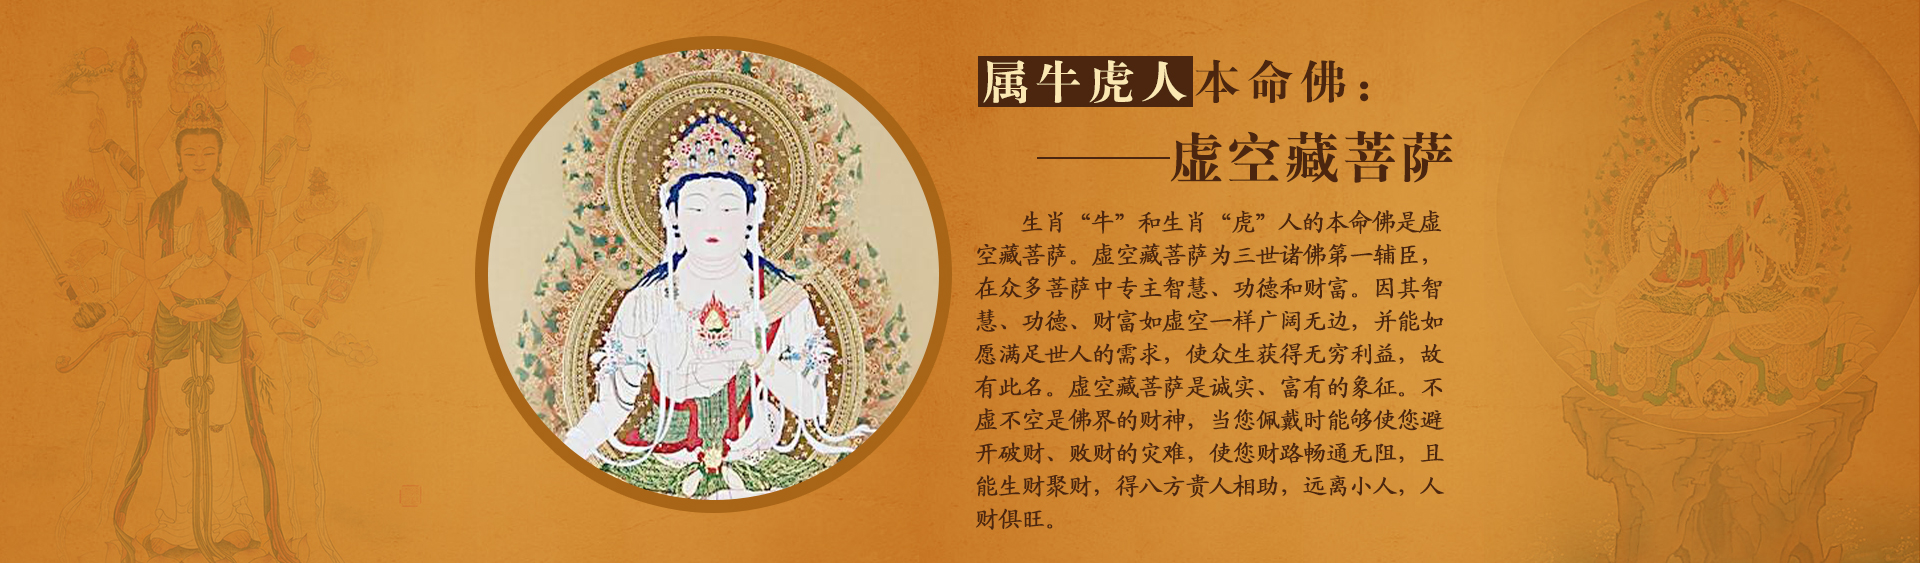 属牛虎人本命佛：
———虚空藏菩萨
生肖“牛”和生肖“虎”人的本命佛是虚
空藏菩萨。虚空藏菩萨为三世诸佛第一辅臣，
在众多菩萨中专主智慧、功德和财富。因其智
慧、功德、财富如虚空一样广阔无边，并能如
愿满足世人的需求，使众生获得无穷利益，故
有此名。虚空藏菩萨是诚实、富有的象征。不
虚不空是佛界的财神，当您佩戴时能够使您避
开破财、败财的灾难，使您财路畅通无阻，且
能生财聚财，得八方贵人相助，远离小人，人
财俱旺。